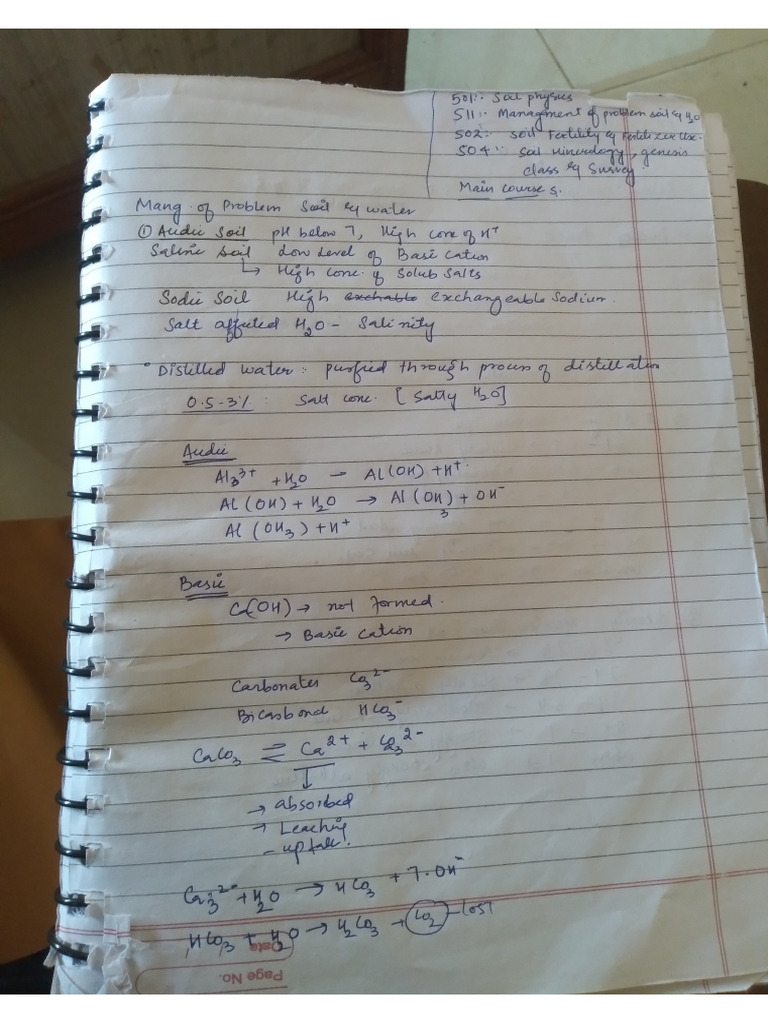 501:- Soil physics
511:- Management of problem soil & H2O
502:- Soil Fertility & Fertilizer Use.
504:- Soil Minerology, genesis
class & Survey.
Main courses.
Mang. of Problem Soil & water
① Acidic Soil pH below 7, High conc of H+
Saline Soil Low Level of Basic Cation
↳ High conc. of Solub Salts
Sodic Soil High exchable exchangeable Sodium.
Salt affected H2O - Salinity
• Distilled water: purified through process of distillation
0.5-3% : Salt conc. [Salty H2O]
Acidic
Al3 3+ + H2O → Al(OH) + H+.
Al(OH) + H2O → Al(OH)3 + OH-
Al(OH3) + H+
Basic
Ca(OH) → not formed.
→ Basic Cation
Carbonates CO3 2-
Bicarbond HCO3-
CaCO3 ⇌ Ca2+ + CO3 2-
↓
→ absorbed
→ Leaching
- uptake.
+ H2O → HCO3 + 7.OH-
HCO3 + H2O → H2CO3 + CO2 - Lost
Date
Page No.